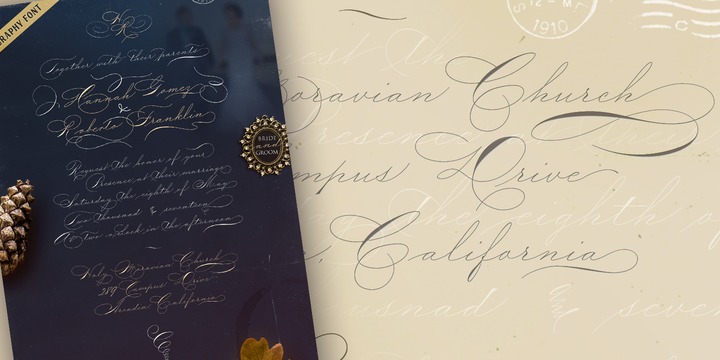 GRAPHY FONT
HR
Together with their parents
Hannah Gomez
&
Roberto Franklin
Request the honor of your
Presence at their marriage
Saturday the eighth of May
Two thousand & seventeen
At two o'clock in the afternoon
Holy Moravian Church
289 Campus Drive
Arcadia California
BRIDE
and
GROOM
12-M
1910
C
oravian Church
mpus Drive
, California
est th
resence
The eighth of
usnad & seve